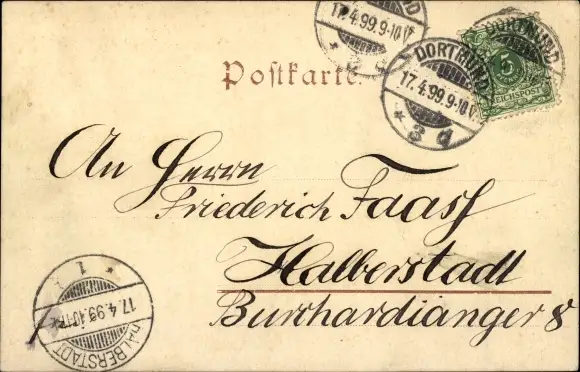 DORTMUND
17.4.99.9-10V.
Postkarte.
DORTMUND
17.4.99.9-10V.
* 3 d
DORTMUND
5
REICHSPOST
An Herrn
Friederich Faass
Halberstadt
Burchardianger 8
* 1
17.4.99.
HALBERSTADT